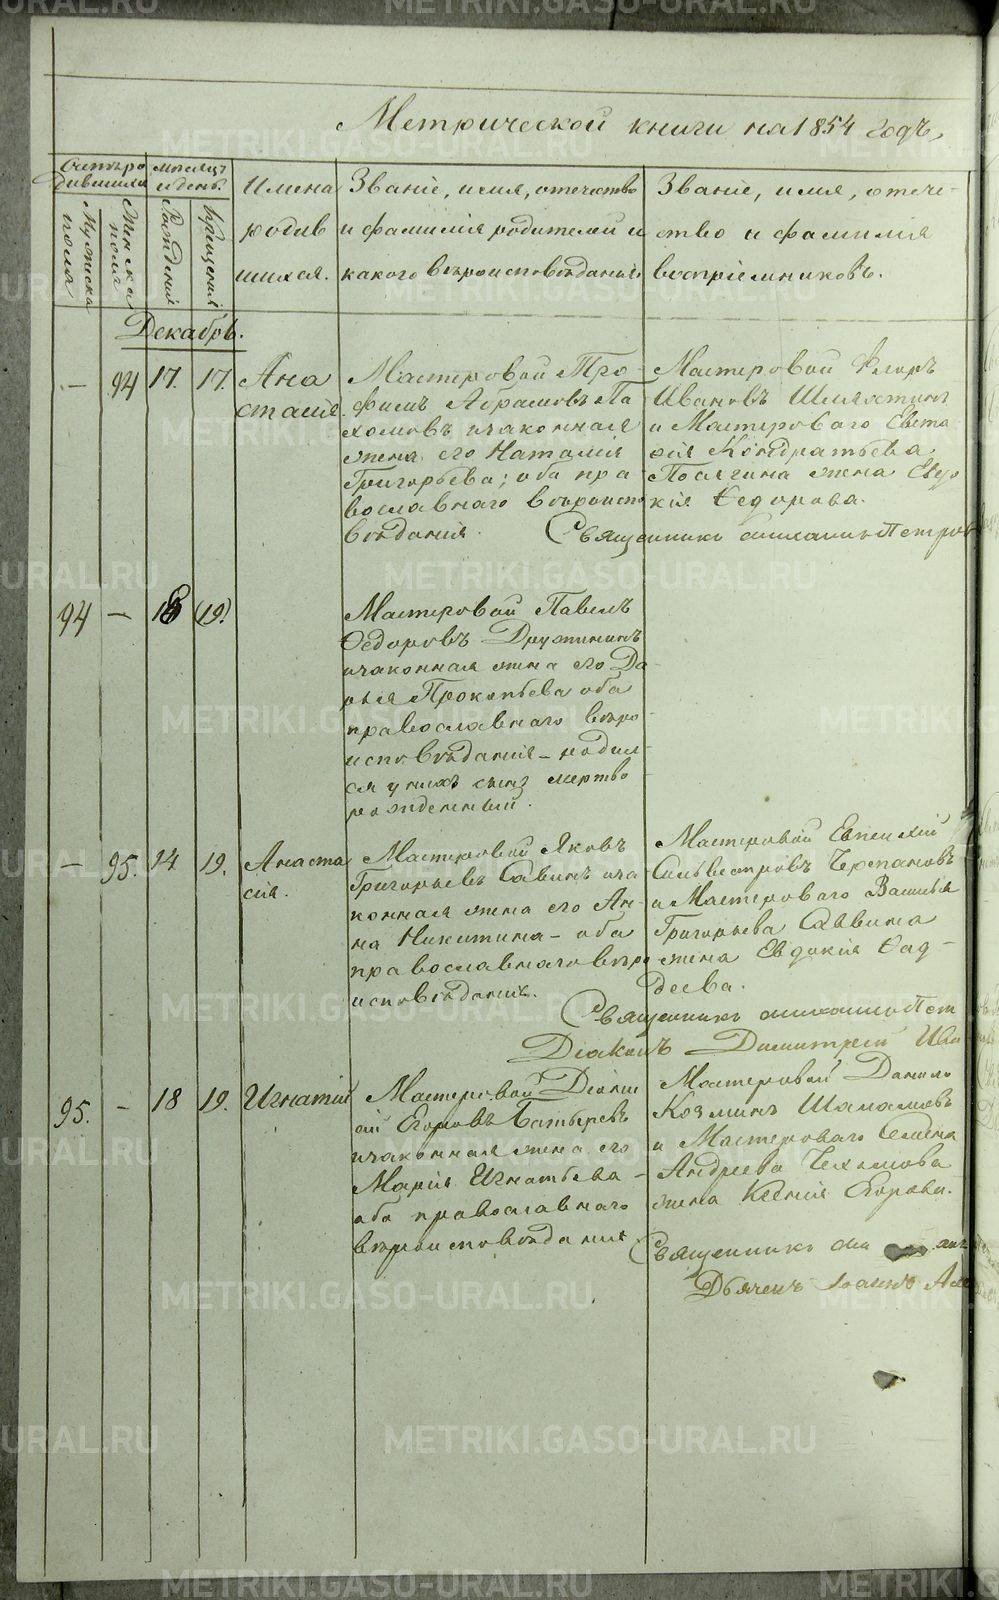 Метрической книги на 1854 годъ,
Счетъ родившихся
мѣсяцъ и день.
Имена родившихся.
Званіе, имя, отчество и фамилія родителей и какого вѣроисповѣданія
Званіе, имя, отчество и фамилія воспріемниковъ.
Мужеска пола
Женска пола
Рожденія
Крещенія
Декабрь.
— 94 17. 17. Ана
стасія.
Мастеровой Тро-
фимъ Абрамовъ Па
хомовъ и законная
жена его Наталія
Григорьева; оба пра
вославнаго вѣроиспо
вѣданія.
Мастеровой Флоръ
Ивановъ
и Мастероваго Евста
фія Кондратьева
жена Евдо
кія Ѳедорова.
Священникъ Петров
94 — 18 (19.)
Мастеровой Павелъ
Ѳедоровъ Дружининъ
и законная жена его Да
рья Прокопьева оба
православнаго вѣро-
исповѣданія – родил-
ся у нихъ сынъ мертво
рожденный.
— 95. 14 19. Анаста
сія.
Мастеровой Яковъ
Григорьевъ Савинъ и за
конная жена его Ан-
на Никитина – оба
православнаго вѣро
исповѣданія.
Мастеровой Евгеній
Сильвестровъ Черпановъ
и Мастероваго Василья
Григорьева Саввина
жена Евдокія Ѳад-
деева.
Священникъ Пет
Діаконъ Димитрей Ива
95. — 18 19. Игнатій
Мастеровой Діони
сій Егоровъ Батыревъ
и законная жена его
Марія Игнатьева –
оба православнаго
вѣроисповѣданія
Мастеровой Данило
Козминъ Шаламовъ
и Мастероваго Семена
Андреева
жена Ксенія Егорова.
Священникъ
Дьячекъ Іоаннъ
METRIKI.GASO-URAL.RU